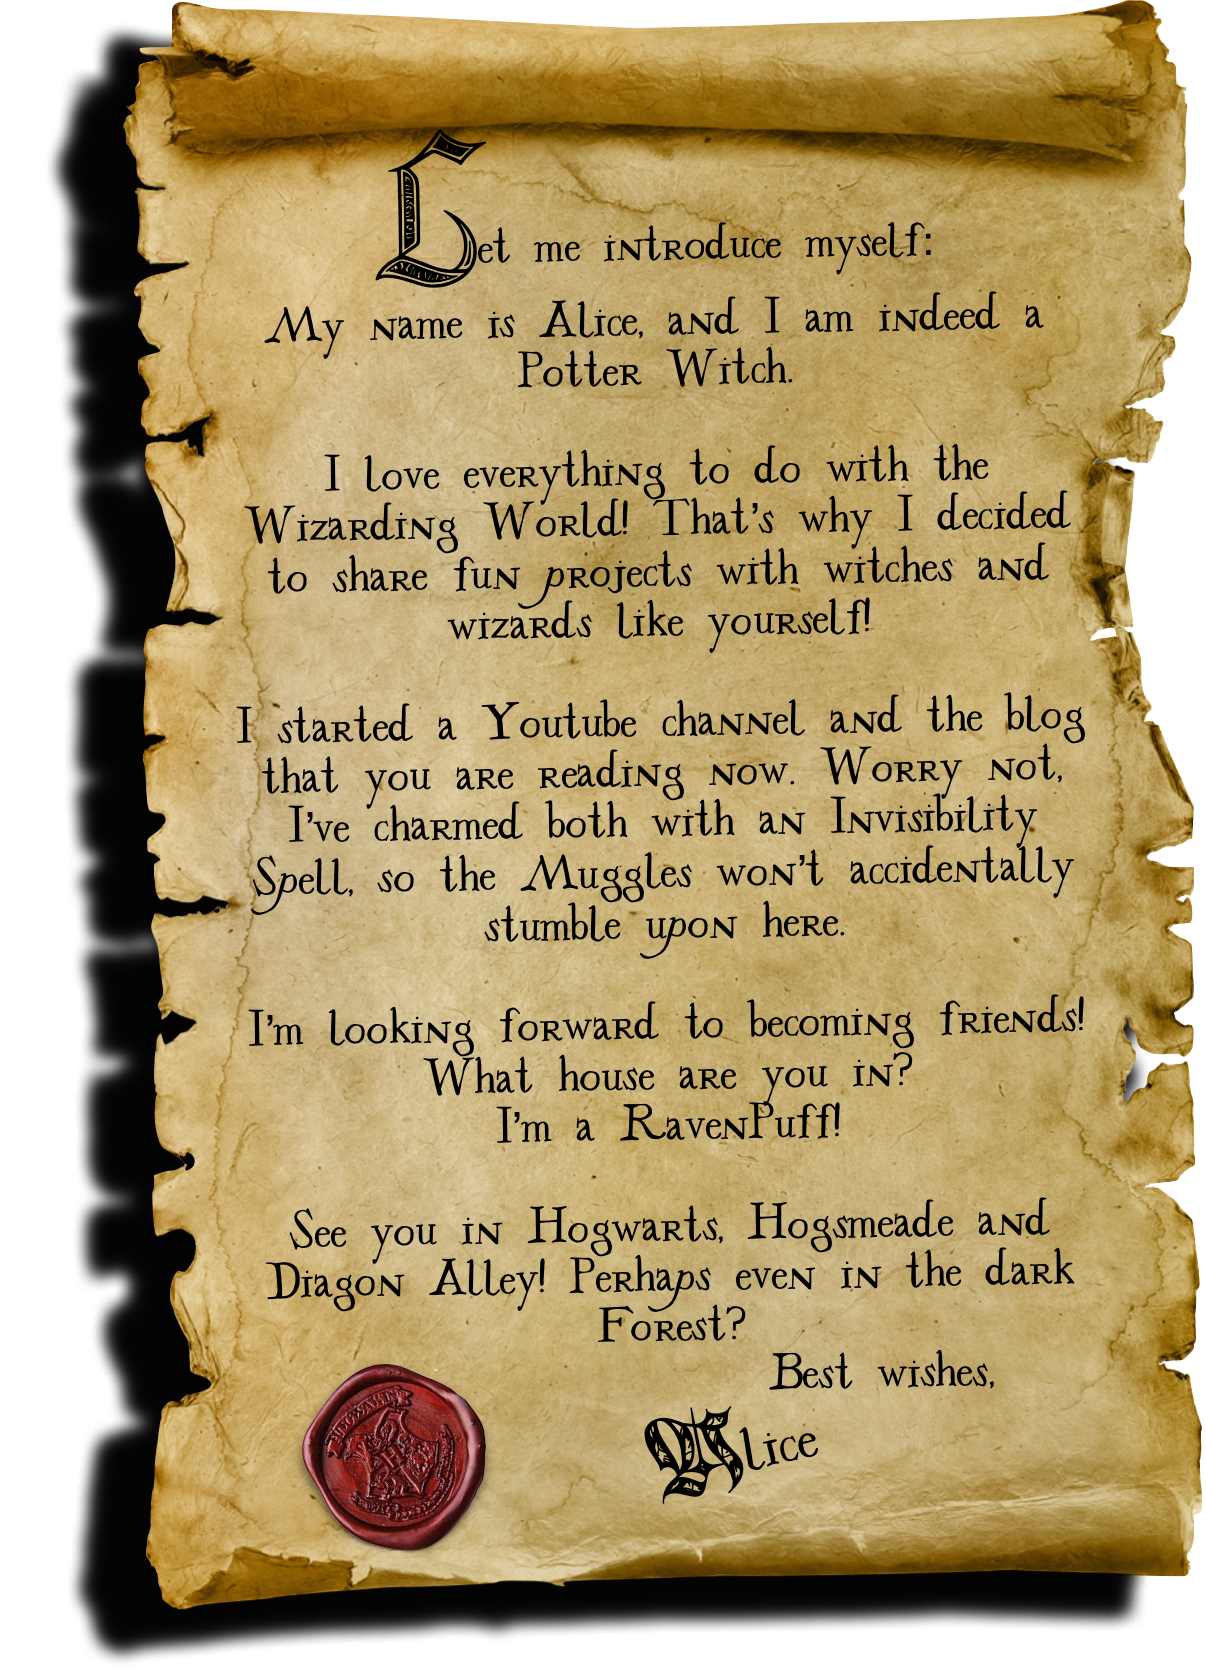 Let me introduce myself:
My name is Alice, and I am indeed a
Potter Witch.
I love everything to do with the
Wizarding World! That's why I decided
to share fun projects with witches and
wizards like yourself!
I started a Youtube channel and the blog
that you are reading now. Worry not,
I've charmed both with an Invisibility
Spell, so the Muggles won't accidentally
stumble upon here.
I'm looking forward to becoming friends!
What house are you in?
I'm a RavenPuff!
See you in Hogwarts, Hogsmeade and
Diagon Alley! Perhaps even in the dark
Forest?
Best wishes,
Alice